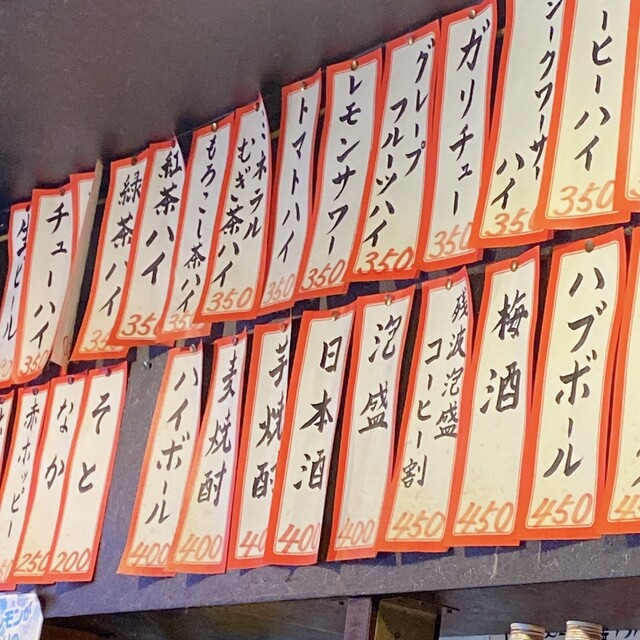 チューハイ
350
緑茶ハイ
350
紅茶ハイ
350
もろこし茶ハイ
350
ミネラル
むぎ茶ハイ
350
トマトハイ
350
レモンサワー
350
グレープ
フルーツハイ
350
ガリチュー
350
シークワーサー
ハイ
350
コーヒーハイ
350
赤ホッピー
なか
250
そと
200
ハイボール
400
麦焼酎
400
芋焼酎
日本酒
400
泡盛
400
残波泡盛
コーヒー割
450
梅酒
450
ハブボール
450